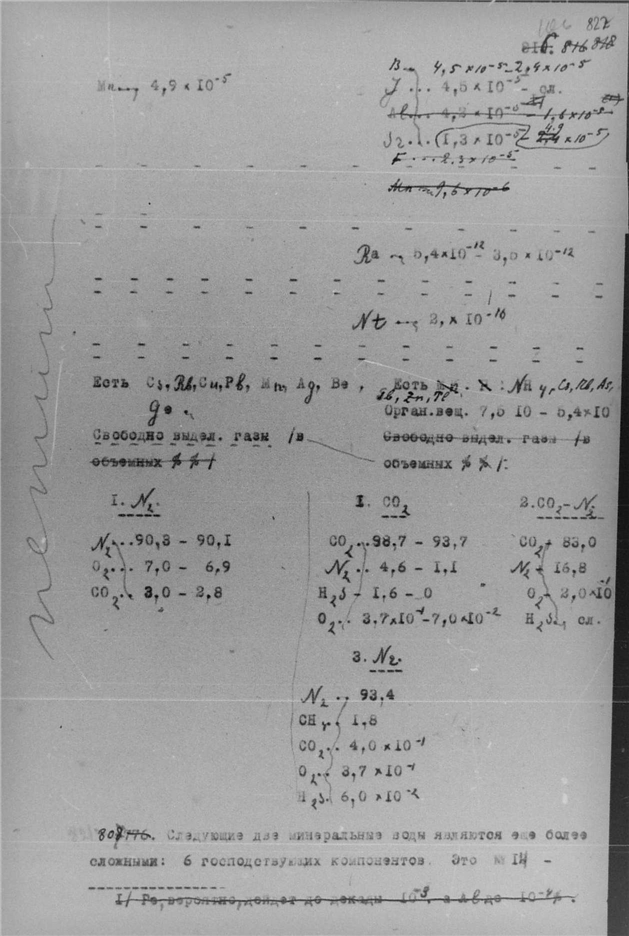 827
816 818
B 4,5×10⁻⁵ – 2,4×10⁻⁵
Mn 4,9×10⁻⁵
J ... 4,5×10⁻⁵ – сл.
Al ... 4,2×10⁻⁵ – 1,6×10⁻⁵
1,3×10⁻⁵ – 4,9 ×10⁻⁵
F ... 2,3×10⁻⁵
Mn 9,6×10⁻⁶
Ra 5,4×10⁻¹² – 3,5×10⁻¹²
Nt 2,×10⁻¹⁰
нептили
Есть Cs, Rb, Cu, Pb, Mn, Ag, Be, Есть NH₄, Cs, Rb, As,
Ge. Sb, Zn,
Орган.вещ. 7,5 10 – 5,4×10
Свободно выдел. газы /в Свободно выдел. газы /в
объемных % %/ объемных % %/.
1. N₂. 1. CO₂ 2. CO₂–N₂
N₂...90,3 – 90,1 CO₂..98,7 – 93,7 CO₂ – 83,0
O₂... 7,0 – 6,9 N₂ – 4,6 – 1,1 N₂ – 16,8
CO₂.. 3,0 – 2,8 H₂S – 1,6 – 0 O₂ – 2,0×10⁻¹
O₂.. 3,7×10⁻¹–7,0×10⁻² H₂S. сл.
3. N₂.
N₂ .. 93,4
CH₄.. 1,8
CO₂.. 4,0×10⁻¹
O₂.. 3,7×10⁻¹
H₂S. 6,0×10⁻²
Следующие две минеральные воды являются еще более
сложными: 6 господствующих компонентов. Это № 14 –
1/ Ра, вероятно, дойдет до декады 10⁻³, а Al до